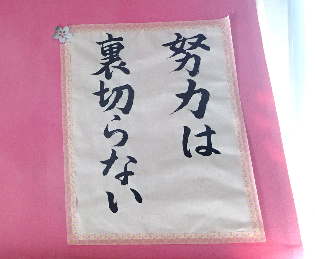 努力は
裏切らない